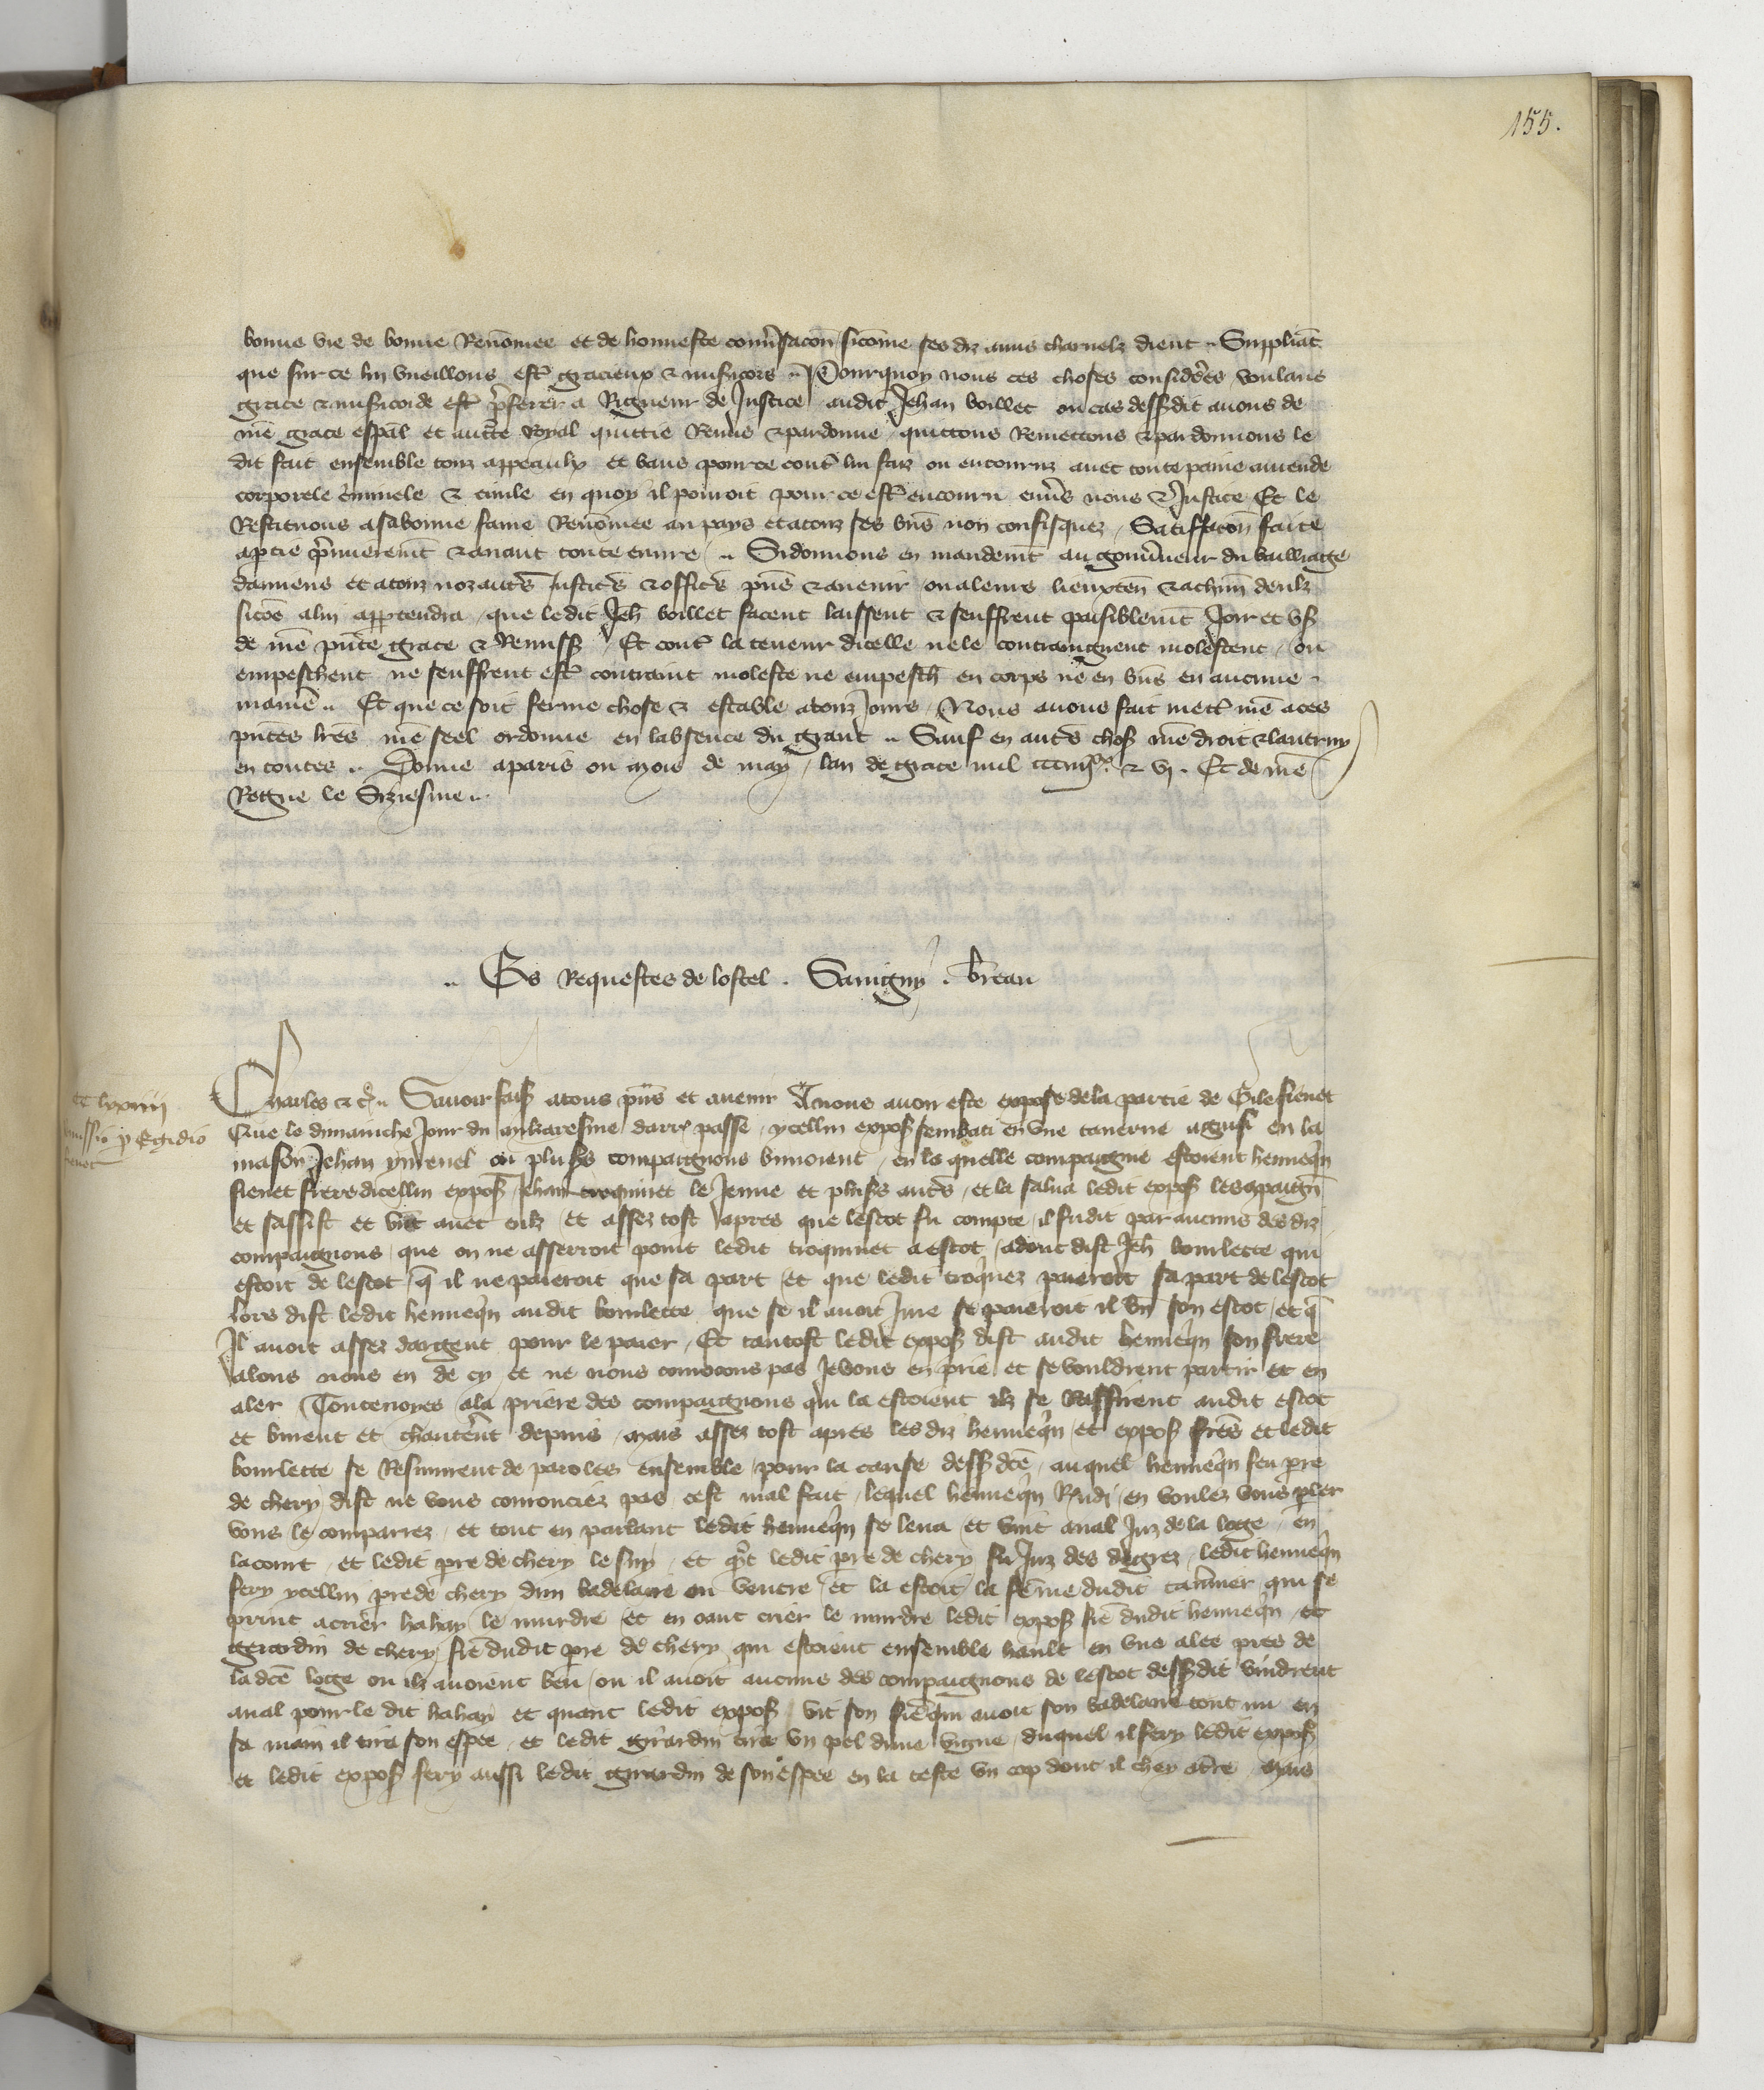 155.
bonne vie de bonne Renōmee et de honneste conūsacōn sicōme ses diz amis charnelz dient .. Suppliāt
que sur ce lui vueillons estr̄ gracieux & misicors .. Pourquoy nous ces choses considēes voulans
grace & misicorde estr̄ p̄ferer a Rigueur de Justice audit Jehan boillet ou cas dessudit auons de
nr̄e grace esp̄al et auct̄te Royal quittie Remis & pardonne quittons Remettons & pardonnons le
dit fait ensemble touz appeaulx et bans pour ce contr̄ lui faiz ou encouruz auec toute paine amende
corporele c̄minele & ciuile en quoy il pouroit pour ce estr̄ encouru enūs nous & Justice Et le
Restituons a sa bonne fame Renōmee au pays et a touz ses bn̄s non confisquez Satiffacōn faite
a p̄tie p̄mierem̄t & auant toute euure .. Si donnons en mandem̄t au gouūneur du bailliage
damiens et a touz noz aut̄s Justic̄s & offic̄s p̄ns & auenir ou a leurs lieuxten̄ & a chūn deulx
sicōe a lui app̄tendra que ledit Jeh̄ boillet facent laissent & seuffrent paisiblem̄t Joir et us̄
de nr̄e p̄nte grace & Remiss̄ Et contr̄ la teneur dicelle ne le contraignent molestent ou
empeschent ne seuffrent estr̄ contraint moleste ne empesch̄ en corps ne en bn̄s en aucune
manie .. Et que ce soit ferme chose & estable a touz Jours Nous auons fait mettr̄ nr̄e a ces
p̄ntes lr̄es nr̄e seel ordonne en labsence du grant .. Sauf en aut̄s chos̄ nr̄e droit & lautruy
en toutes .. Donne a paris ou mois de may lan de grace mil ccc iiijxx & vj. Et de nr̄e
Regne le Siziesme ..
.. Es Requestes de lostel . Sauigny . br̄eau
cc lxxiiij
Remissio p̄ Egidio
fienet
Charles &c̄ .. Sauoir fais̄ a tous p̄ns et auenir A nous auoir este expose de la partie de Gile fienet
Que le dimainche Jour du mikaresme darr̄ passe ycellui expos̄ sembati en vne tauerne a gusi en la
maison Jehan ymenel ou plus̄s compaignons buuoient en la quelle compaignie estoient henneq̄n
fienet frere dicellui expos̄ Jehan troquinet le Jeune et plus̄s aut̄s et la salua ledit expos̄ les compaign̄
et sassist et but auec eulx et assez tost apres que lescot fu compte il fu dit par aucuns des diz
compaignons que on ne asserroit point ledit troquinet a escot adont dist Jeh̄ bourlette qui
estoit de lescot q̄ il ne paieroit que sa part et que ledit troquinez paieroit sa part de lescot
lors dist ledit henneq̄n audit bourlette que se il auoit Jue se paieroit il bn̄ son escot et q̄
Il auoit assez dargent pour le paier Et tantost ledit expos̄ dist audit henneq̄n son frere
alons nous en de cy et ne nous couroçons pas Je vous en prie et se vouldrent partir et en
aler Toutesuoyes a la priere des compaignons qui la estoient ilz se Rassirent audit escot
et burent et chant̄ent depuis mais assez tost apres les diz henneq̄n et expos̄ fr̄es et ledit
bourlette se Resmurent de paroles ensemble pour la cause dess̄ dc̄e auquel henneq̄n feu p̄re
de chery dist ne vous courouciez pas cest mal fait lequel henneq̄n R̄ndi en voulez vous p̄ler
vous le comparrez et tout en parlant ledit henneq̄n se leua et vint aual Juz de la loge en
la court et ledit p̄re de chery le suy et q̄nt ledit p̄re de chery fu Juz des degrez ledit henneq̄n
fery ycellui p̄re de chery dun badelaire ou ventre et la estoit la fēme dudit tau̅nier qui se
print a crier hahay le murdre et en oant crier le murdre ledit expos̄ fr̄e dudit henneq̄n et
gerardin de chery fr̄e dudit p̄re de chery qui estoient ensemble hault en vne alee pres de
la dc̄e loge ou ilz auoient beu ou il auoit aucuns des compaignons de lescot dess̄dit vindrent
aual pour le dit hahay et quant ledit expos̄ vit son fr̄e qui auoit son badelaire tout nu en
sa main il tira son espee et ledit girardin tira vn pel dune vigne duquel il fery ledit expos̄
et ledit expos̄ fery aussi ledit girardin de son espee en la teste vn cop dont il chey a t̄re mais